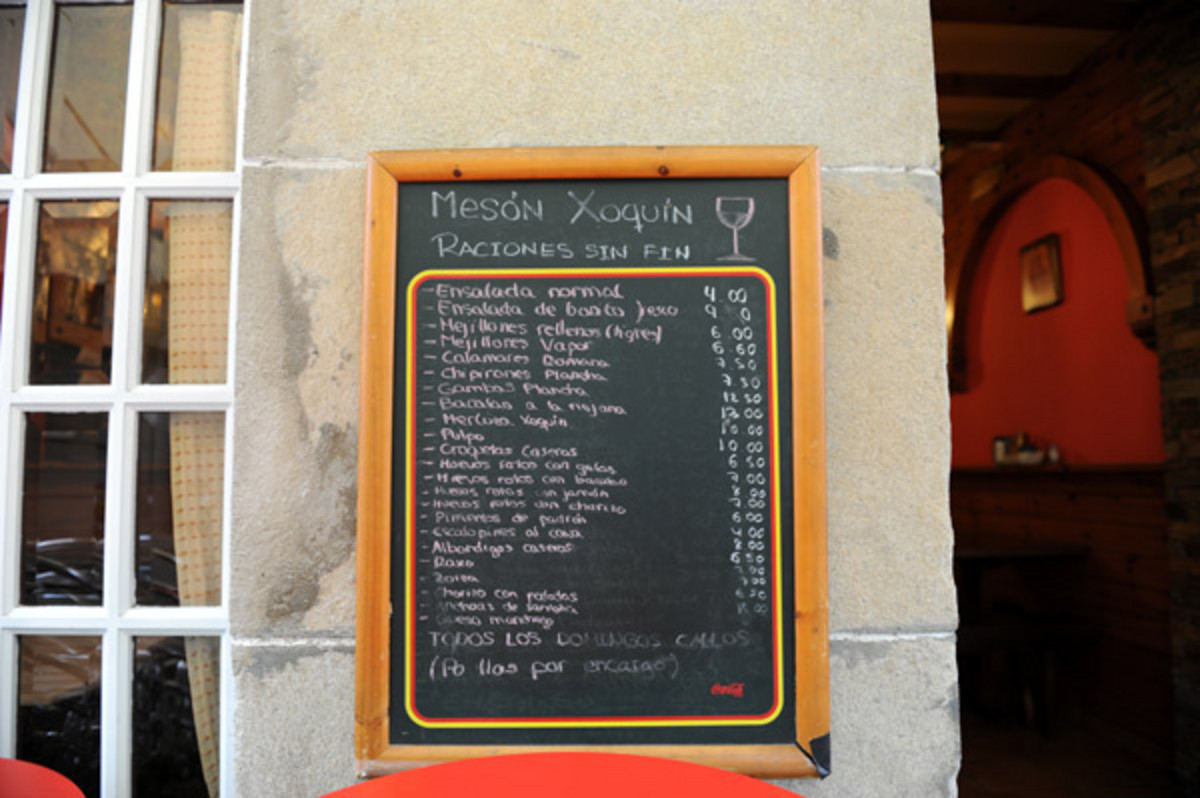 Mesón Xoquín
RACIONES SIN FIN
- Ensalada normal 4.00
- Ensalada de bonito
- Mejillones rellenos (tigres) 6.00
- Mejillones Vapor 6.60
- Calamares Romana 7.50
- Chipirones Plancha 7.50
- Gambas Plancha 12.50
- Bacalao a la riojana
- Merluza Xoquín 10.00
- Pulpo 10.00
- Croquetas Caseras 6.50
- Huevos rotos con gulas 7.00
- Huevos rotos con bacalao 8.00
- Huevos rotos con jamón 7.00
- Huevos rotos con chorizo 6.00
- Pimientos de padrón 4.00
- Escalopines al cava 8.00
- Albondigas caseras 6.50
- Raxo 7.00
- Zorza 7.00
- Chorizo con patatas 6.50
- Anchoas de
- Queso manchego
TODOS LOS DOMINGOS CALLOS
por encargo)
Coca-Cola